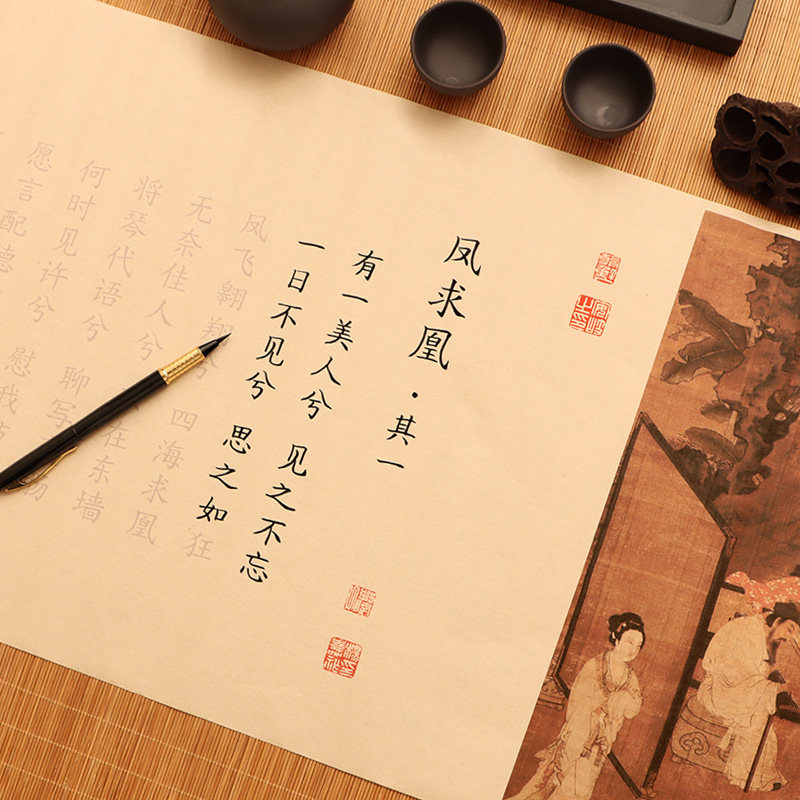 凤求凰·其一
有一美人兮 见之不忘
一日不见兮 思之如狂
凤飞翱翔兮 四海求凰
无奈佳人兮 在东墙
将琴代语兮 聊写
何时见许兮 慰我
愿言配德